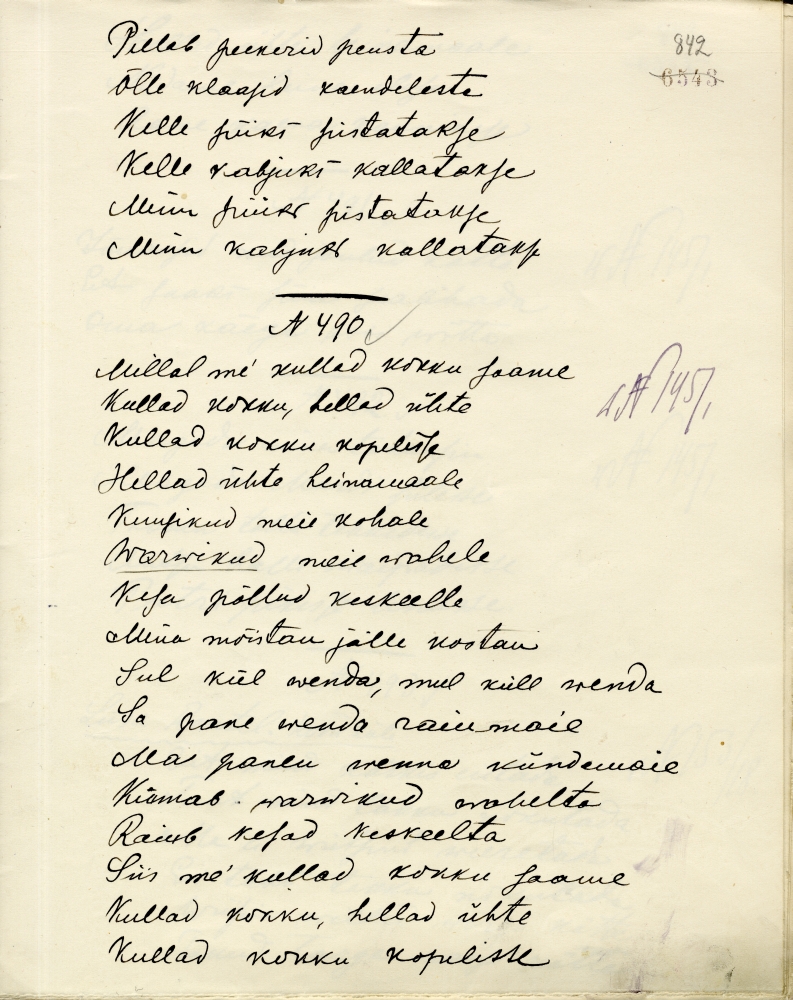 842
6548
Pillab peekerid peusta
Õlle klaasid kaendeleste
Kelle püiks püstatakse
Kelle kahjuks kallatakse
Minu püiks püstatakse
Minu kahjuks kallatakse
N 490
Millal me' kullad kokku saame
Kullad kokku, hellad ühte
Kullad kokku kopelisse
Hellad ühte heinamaale
Kuusikud meie kohale
Warwikud meie wahele
Kesa põllud keskeelle
Mina mõistan jälle kostan
Sul kül wenda, mul küll wenda
Sa pane wenda raiumaie
Ma panen wenna kündemaie
Kismab warwikud wahelta
Raiub kesad keskeelta
Siis me' kullad kokku saame
Kullad kokku, hellad ühte
Kullad kokku kopelisse